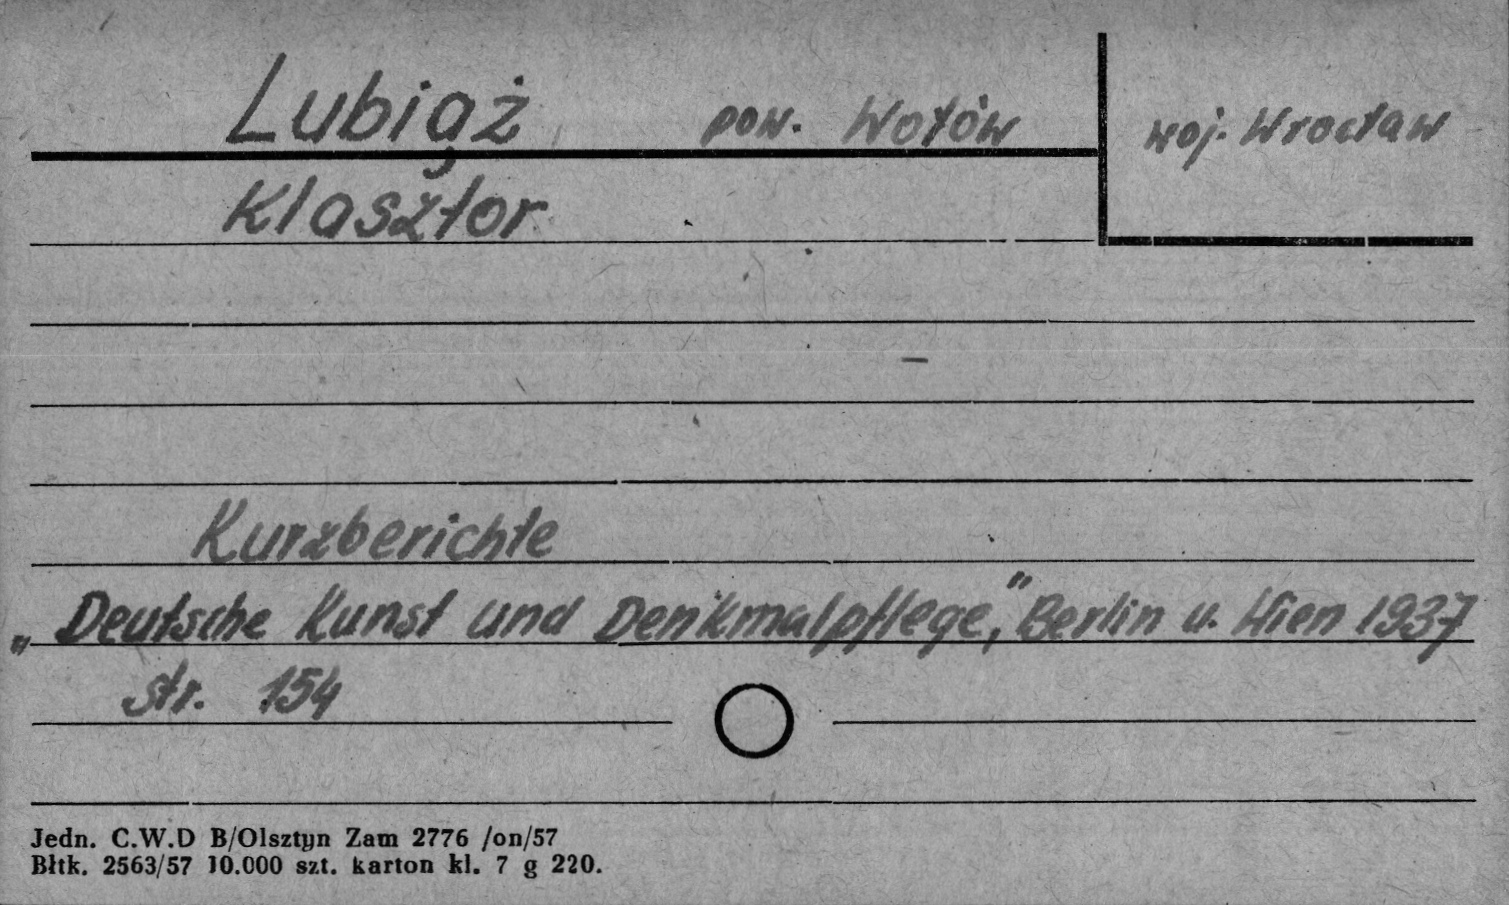 Lubiąż pow. Wołów woj. Wrocław
Klasztor
Kurzberichte
„Deutsche Kunst und Denkmalpflege," Berlin u. Wien 1937
str. 154
Jedn. C.W.D B/Olsztyn Zam 2776 /on/57
Błtk. 2563/57 10.000 szt. karton kl. 7 g 220.